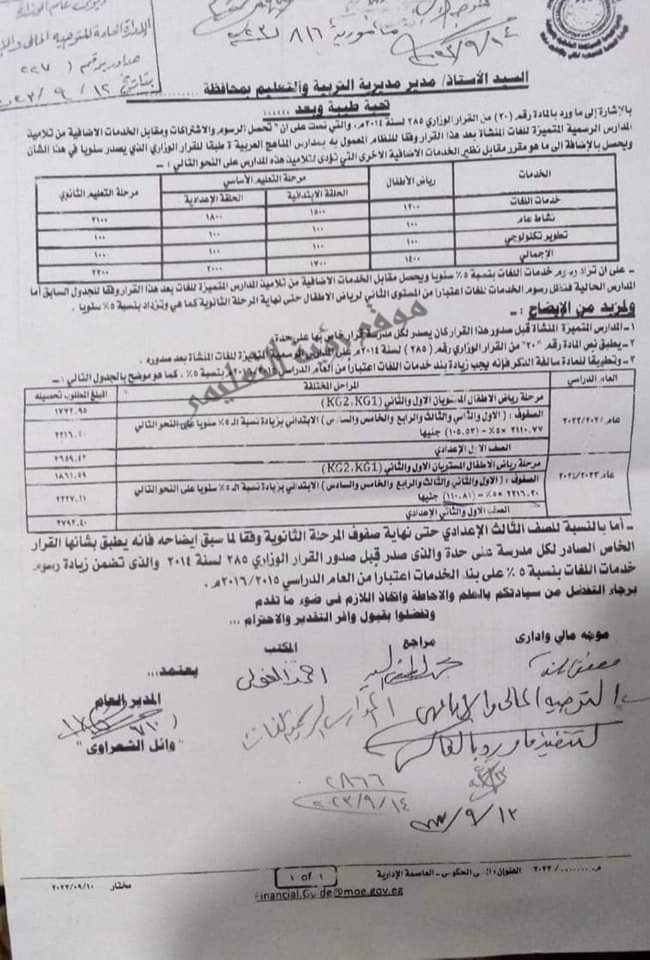 ديوان عام الوزارة
الإدارة العامة للتوجيه المالي والإداري
صادر برقم ( ٢٢٧٠
بتاريخ ١٢ / ٩ / ٢٠٢٣
مأمورية ٨١٦
٢٠٢٣/٩/١٤
السيد الأستاذ/ مدير مديرية التربية والتعليم بمحافظة
تحية طيبة وبعد ......
بالإشارة إلى ما ورد بالمادة رقم (٢٠) من القرار الوزاري ٢٨٥ لسنة ٢٠١٤م، والتي نصت على أن " تحصل الرسوم والاشتراكات ومقابل الخدمات الاضافية من تلاميذ
المدارس الرسمية المتميزة للغات المنشاة بعد هذا القرار وفقا للنظام المعمول به بمدارس المناهج العربية طبقا للقرار الوزاري الذي يصدر سنويا في هذا الشأن
ويحصل بالإضافة الى ما هو مقرر مقابل نظير الخدمات الاضافية الاخرى التي تؤدى لتلاميذ هذه المدارس على النحو التالي : ـ
الخدمات رياض الأطفال مرحلة التعليم الأساسي مرحلة التعليم الثانوي
الحلقة الابتدائية الحلقة الإعدادية
خدمات اللغات ١٢٠٠ ١٥٠٠ ١٨٠٠ ٢١٠٠
نشاط عام ١٠٠ ١٠٠ ١٠٠ ١٠٠
تطوير تكنولوجي ١٠٠ ١٠٠ ١٠٠ ١٠٠
الإجمالي ١٤٠٠ ١٧٠٠ ٢٠٠٠ ٢٣٠٠
ـ على ان تزاد رسوم خدمات اللغات بنسبة ٥٪ سنويا ويحصل مقابل الخدمات الاضافية من تلاميذ المدارس المتميزة للغات بعد هذا القرار وفقا للجدول السابق أما
المدارس الحالية فتظل رسوم الخدمات للغات اعتبارا من المستوى الثاني لرياض الاطفال حتى نهاية المرحلة الثانوية كما هي وتزداد بنسبة ٥٪ سنويا .
ولمزيد من الإيضاح : ـ
١ ـ المدارس المتميزة المنشاة قبل صدور هذا القرار كان يصدر لكل مدرسة قرار خاص بها على حدة
٢ ـ يطبق نص المادة رقم "٢٠" من القرار الوزاري رقم ( ٢٨٥ ) لسنة ٢٠١٤م على المدارس الرسمية المتميزة للغات المنشاة بعد صدوره .
٣ ـ وتطبيقا للمادة سالفة الذكر فإنه يجب زيادة بند خدمات اللغات اعتبارا من العام الدراسي ٢٠١٥ / ٢٠١٦م بنسبة ٥٪ ، كما هو موضح بالجدول التالي : ـ
موقع رؤية التعليمي
العام الدراسي المراحل المختلفة المبلغ المطلوب تحصيله
عام ٢٠٢٢/٢٠٢٣ مرحلة رياض الأطفال المستويان الاول والثاني (KG2،KG1) ١٧٧٢.٩٥
الصفوف : (الاول والثاني والثالث والرابع والخامس والسادس ) الابتدائي بزيادة نسبة الـ ٥٪ سنويا على النحو التالي
٢١١٠.٧٧ ×٥٪ (١٠٥.٥٣) جنيها ٢٢١٦.٢٠
الصف الأول الإعدادي ٢٦٥٩.٤٢
عام ٢٠٢٤/٢٠٢٣ مرحلة رياض الأطفال المستويان الاول والثاني (KG2،KG1) ١٨٦١.٥٩
الصفوف : (الاول والثاني والثالث والرابع والخامس والسادس) الابتدائي بزيادة نسبة الـ ٥٪ سنويا على النحو التالي
٢٢١٦.٢٠ ×٥٪ (١١٠.٨١) جنيها ٢٣٢٧.١١
الصف الأول والثاني الإعدادي ٢٧٩٢.٤٠
ـ أما بالنسبة للصف الثالث الإعدادي حتى نهاية صفوف المرحلة الثانوية وفقا لما سبق ايضاحه فانه يطبق بشأنها القرار
الخاص الصادر لكل مدرسة على حدة والذى صدر قبل صدور القرار الوزاري ٢٨٥ لسنة ٢٠١٤ والذى تضمن زيادة رسوم
خدمات اللغات بنسبة ٥ ٪ على بند الخدمات اعتبارا من العام الدراسي ٢٠١٦/٢٠١٥م .
برجاء التفضل من سيادتكم بالعلم والاحاطة واتخاذ اللازم فى ضوء ما تقدم
وتفضلوا بقبول وافر التقدير والاحترام ...
موجه مالي وادارى مراجع المكتب
يعتمد...
المدير العام
" وائل الشعراوى "
التوجيه المالي والإداري
المدارس الرسمية لغات
لتنفيذ ما ورد بالكتاب
٢٨٦٦
٢٠٢٣/٩/١٤
٢٠٢٣/٩/١٣
العنوان : الحي الحكومي ـ العاصمة الإدارية
١ of ١
مختار ٢٠٢٣/٠٩/١٠
Financial.Guide@moe.gov.eg